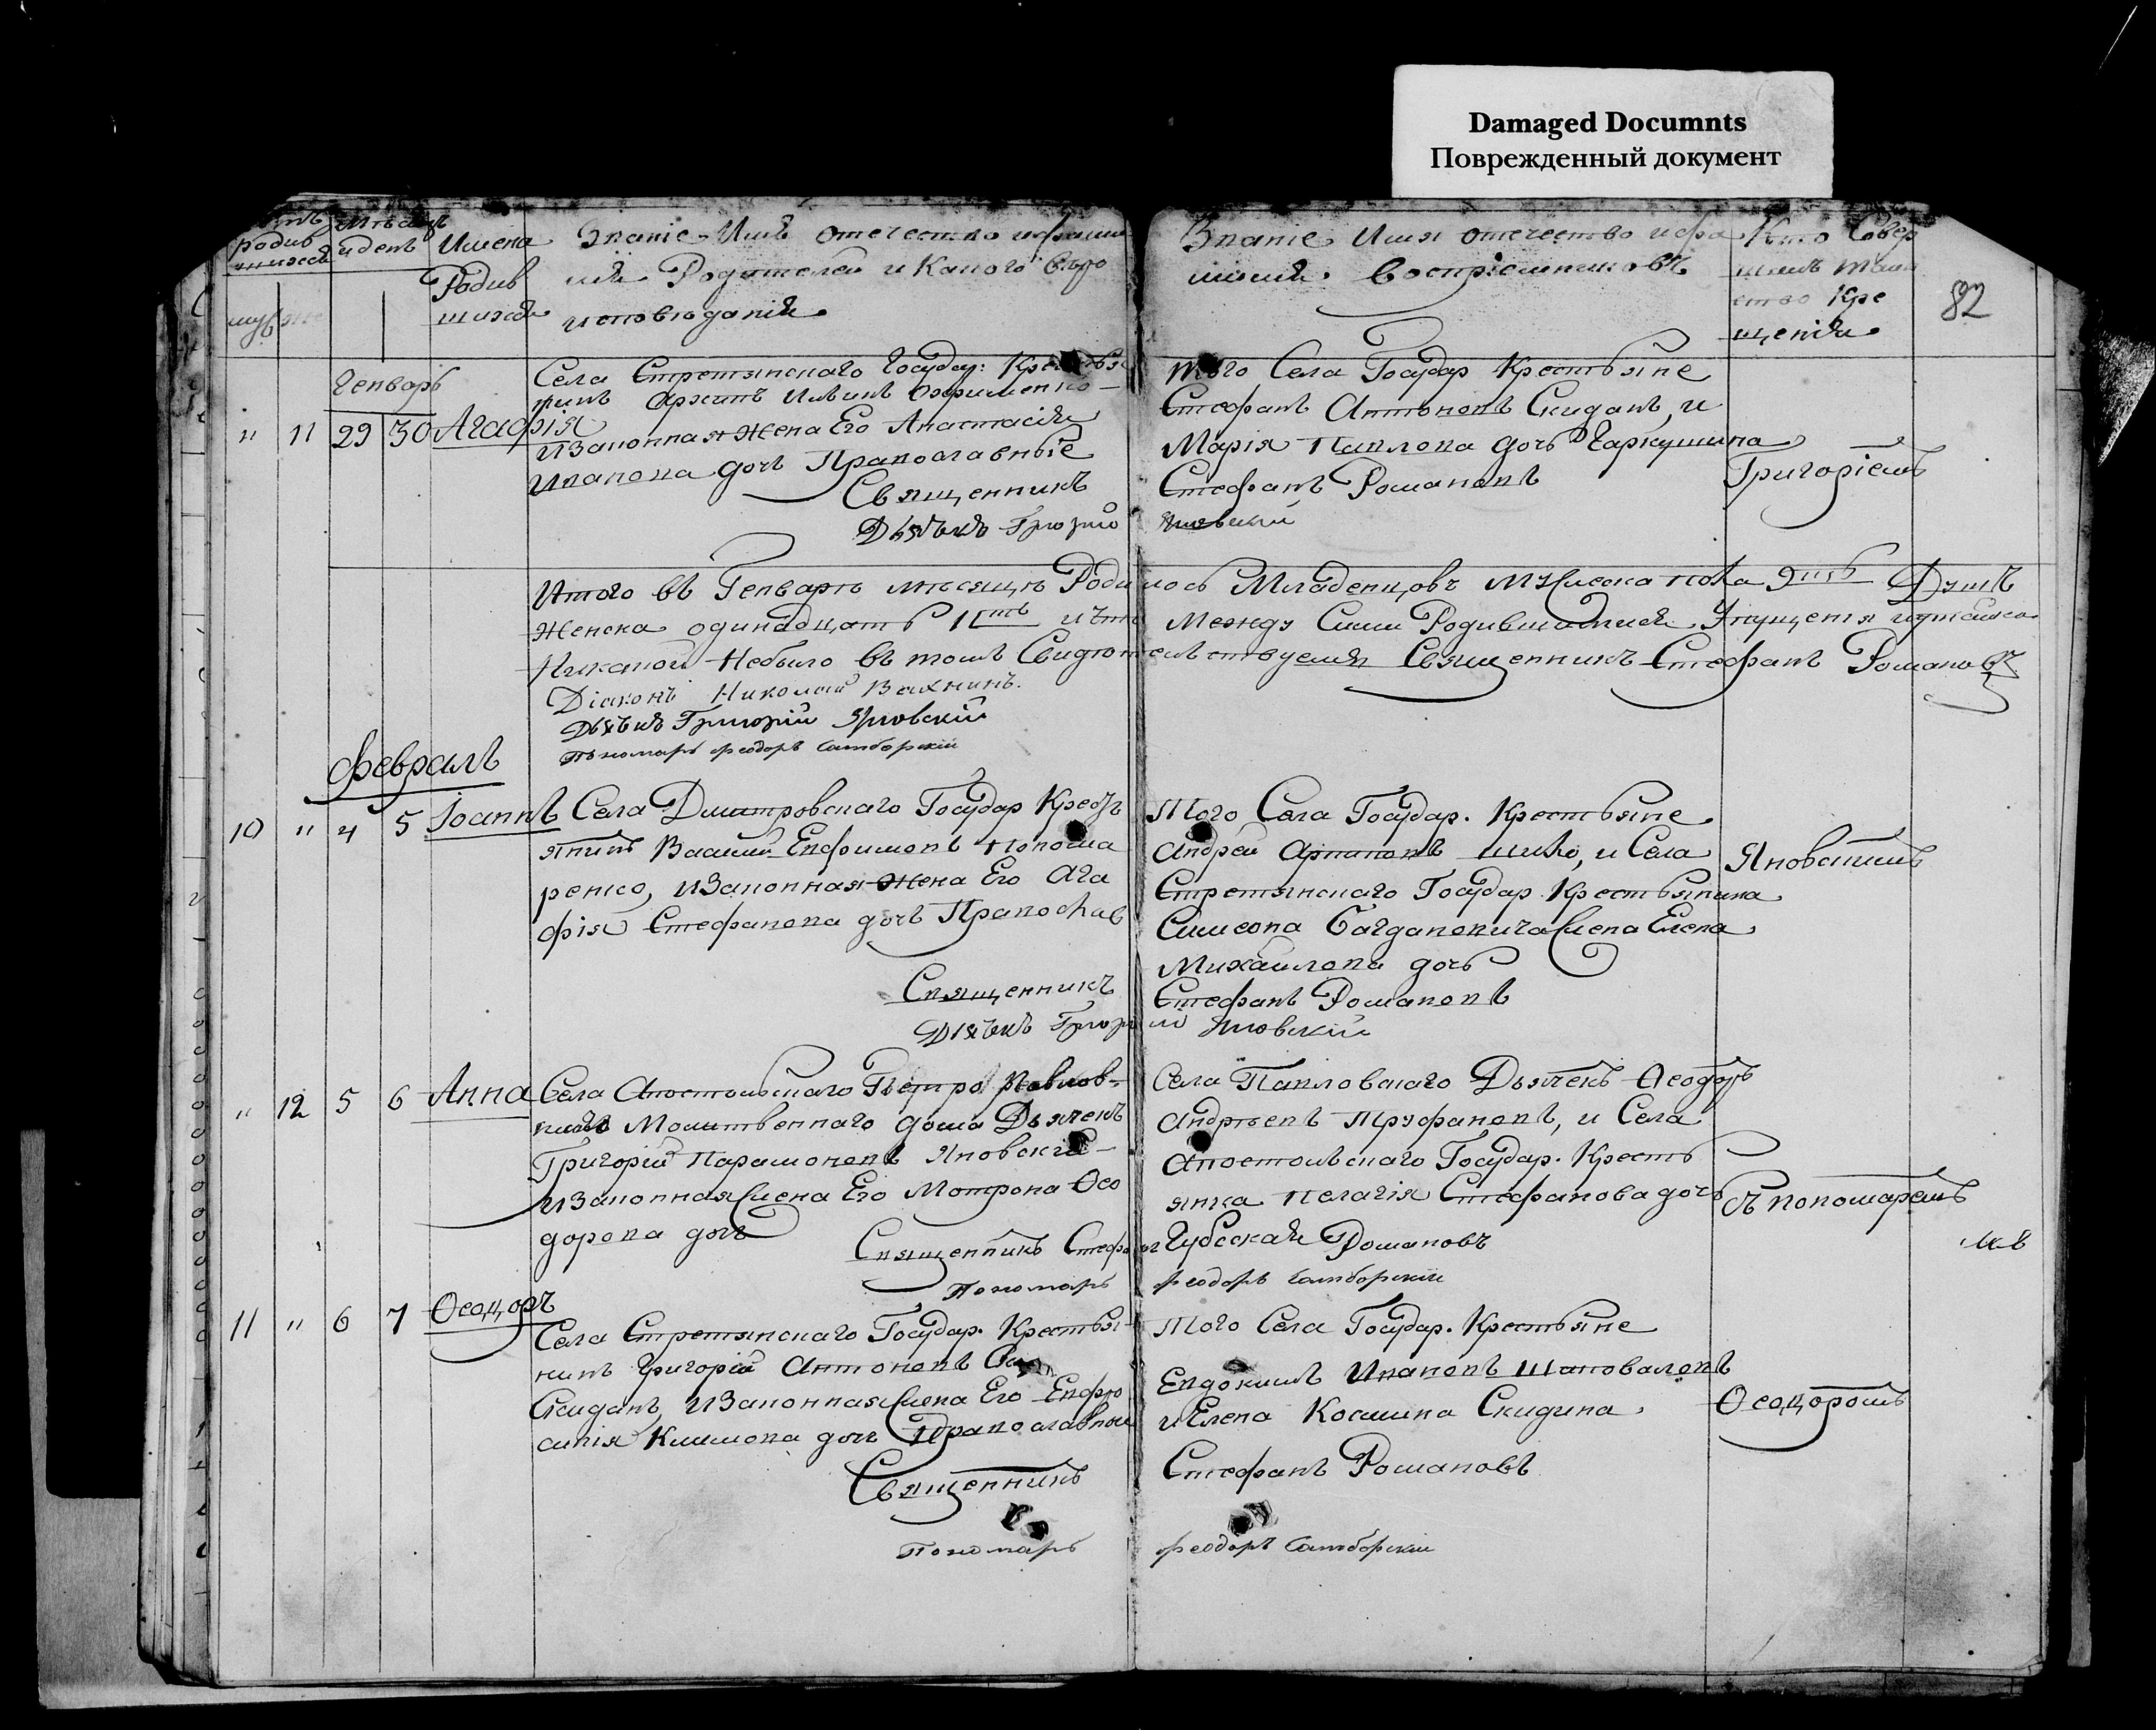 Damaged Documnts
Поврежденный документ
82
Мѣсяцъ
родив
шихся
и день
Имена
Родив
шихся
Званіе Имя отечество и фами
лія Родителей и Какого вѣро
исповѣданія.
Званіе Имя отечество и фа
милія. Воспріемниковъ
Кто Совер
шилъ таин
ство Кре
щенія
муж
Генваръ
" 11 29 30 Агафія
Села Стретинскаго Государ: Крестья
нинъ Архипъ
изаконная Жена Его Анастасія
Иванова дочь Православные
Священникъ
Дьячекъ Григорій
того Села Государ Крестьяне
Стефанъ Антоновъ Скиданъ, и
Марія Павлова дочь Гаркушина
Стефанъ Романовъ
Яновскій
Григоріемъ
Итого въ Генварѣ мѣсяцѣ Родилось Младенцовъ Мужеска пола 9ть Душъ
Женска одинадцать 11ть и что Между Сими Родившимися Упущенія
Никакой Небыло въ томъ Свидѣтельствуемъ Священникъ Стефанъ Романовъ
Діаконъ Николай Вахнинъ.
Дьячекъ Григорій Яновскій
Пономарь Феодоръ Самборскій
Февраль
10 " 4 5 Іоаннъ
Села Дмитровскаго Государ Кресть
янинъ Василій Евфимовъ Понома
ренко, изаконная Жена Его Ага
фія Стефанова дочь Православ
Священникъ
Дьячекъ Григорій
Того Села Государ. Крестьяне
Андрей Архиповъ и Села
Стретинскаго Государ. Крестьянина
Симеона Богдановича Жена Елена
Михайлова дочь
Стефанъ Романовъ
Яновскій
Яновскимъ
" 12 5 6 Анна
Села Апостольскаго Петро Павлов-
скаго Молитвеннаго дома Дьячекъ
Григорій Парамоновъ Яновскій-
изаконная Жена Его Мотрона Ѳео
дорова дочь
Священникъ Стефанъ
Пономарь
Села Павловскаго Дьячекъ Ѳеодоръ
Андрѣевъ Труфановъ, и Села
Апостольскаго Государ. Кресть
янка Пелагія Стефанова дочь
Губская Романовъ
Феодоръ Самборскій
Съ пономаремъ
11 " 6 7 Ѳеодоръ
Села Стретинскаго Государ. Крестья-
нинъ Григорій Антоновъ
Скиданъ, изаконная Жена Его Евфро
синія Климова дочь Православные
Священникъ
Пономарь
Того Села Государ. Крестьяне
Евдокимъ Ивановъ Шаповаловъ
и Елена Космина Скидина.
Стефанъ Романовъ
Феодоръ Самборскій
Ѳеодоромъ